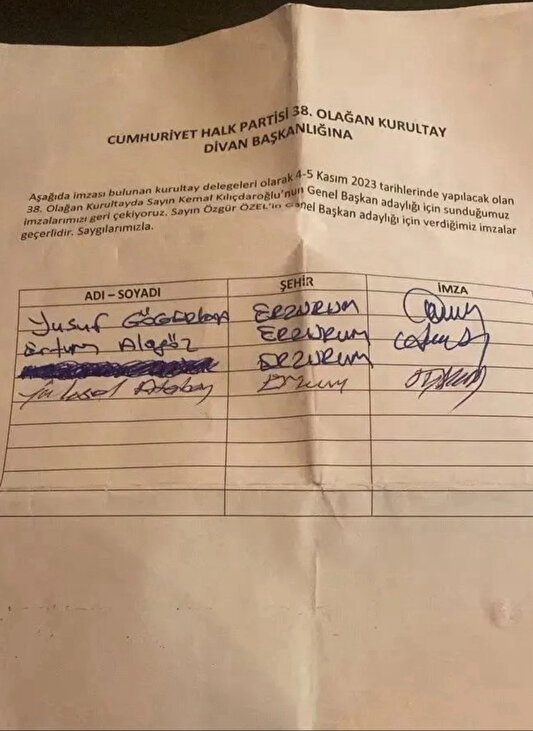 CUMHURİYET HALK PARTİSİ 38. OLAĞAN KURULTAY
DİVAN BAŞKANLIĞINA
Aşağıda imzası bulunan kurultay delegeleri olarak 4-5 Kasım 2023 tarihlerinde yapılacak olan
38. Olağan Kurultayda Sayın Kemal Kılıçdaroğlu'nun Genel Başkan adaylığı için sunduğumuz
imzalarımızı geri çekiyoruz. Sayın Özgür ÖZEL'in Genel Başkan adaylığı için verdiğimiz imzalar
geçerlidir. Saygılarımızla.
ADI – SOYADI ŞEHİR İMZA
Yusuf ERZURUM
Alagöz ERZURUM
ERZURUM